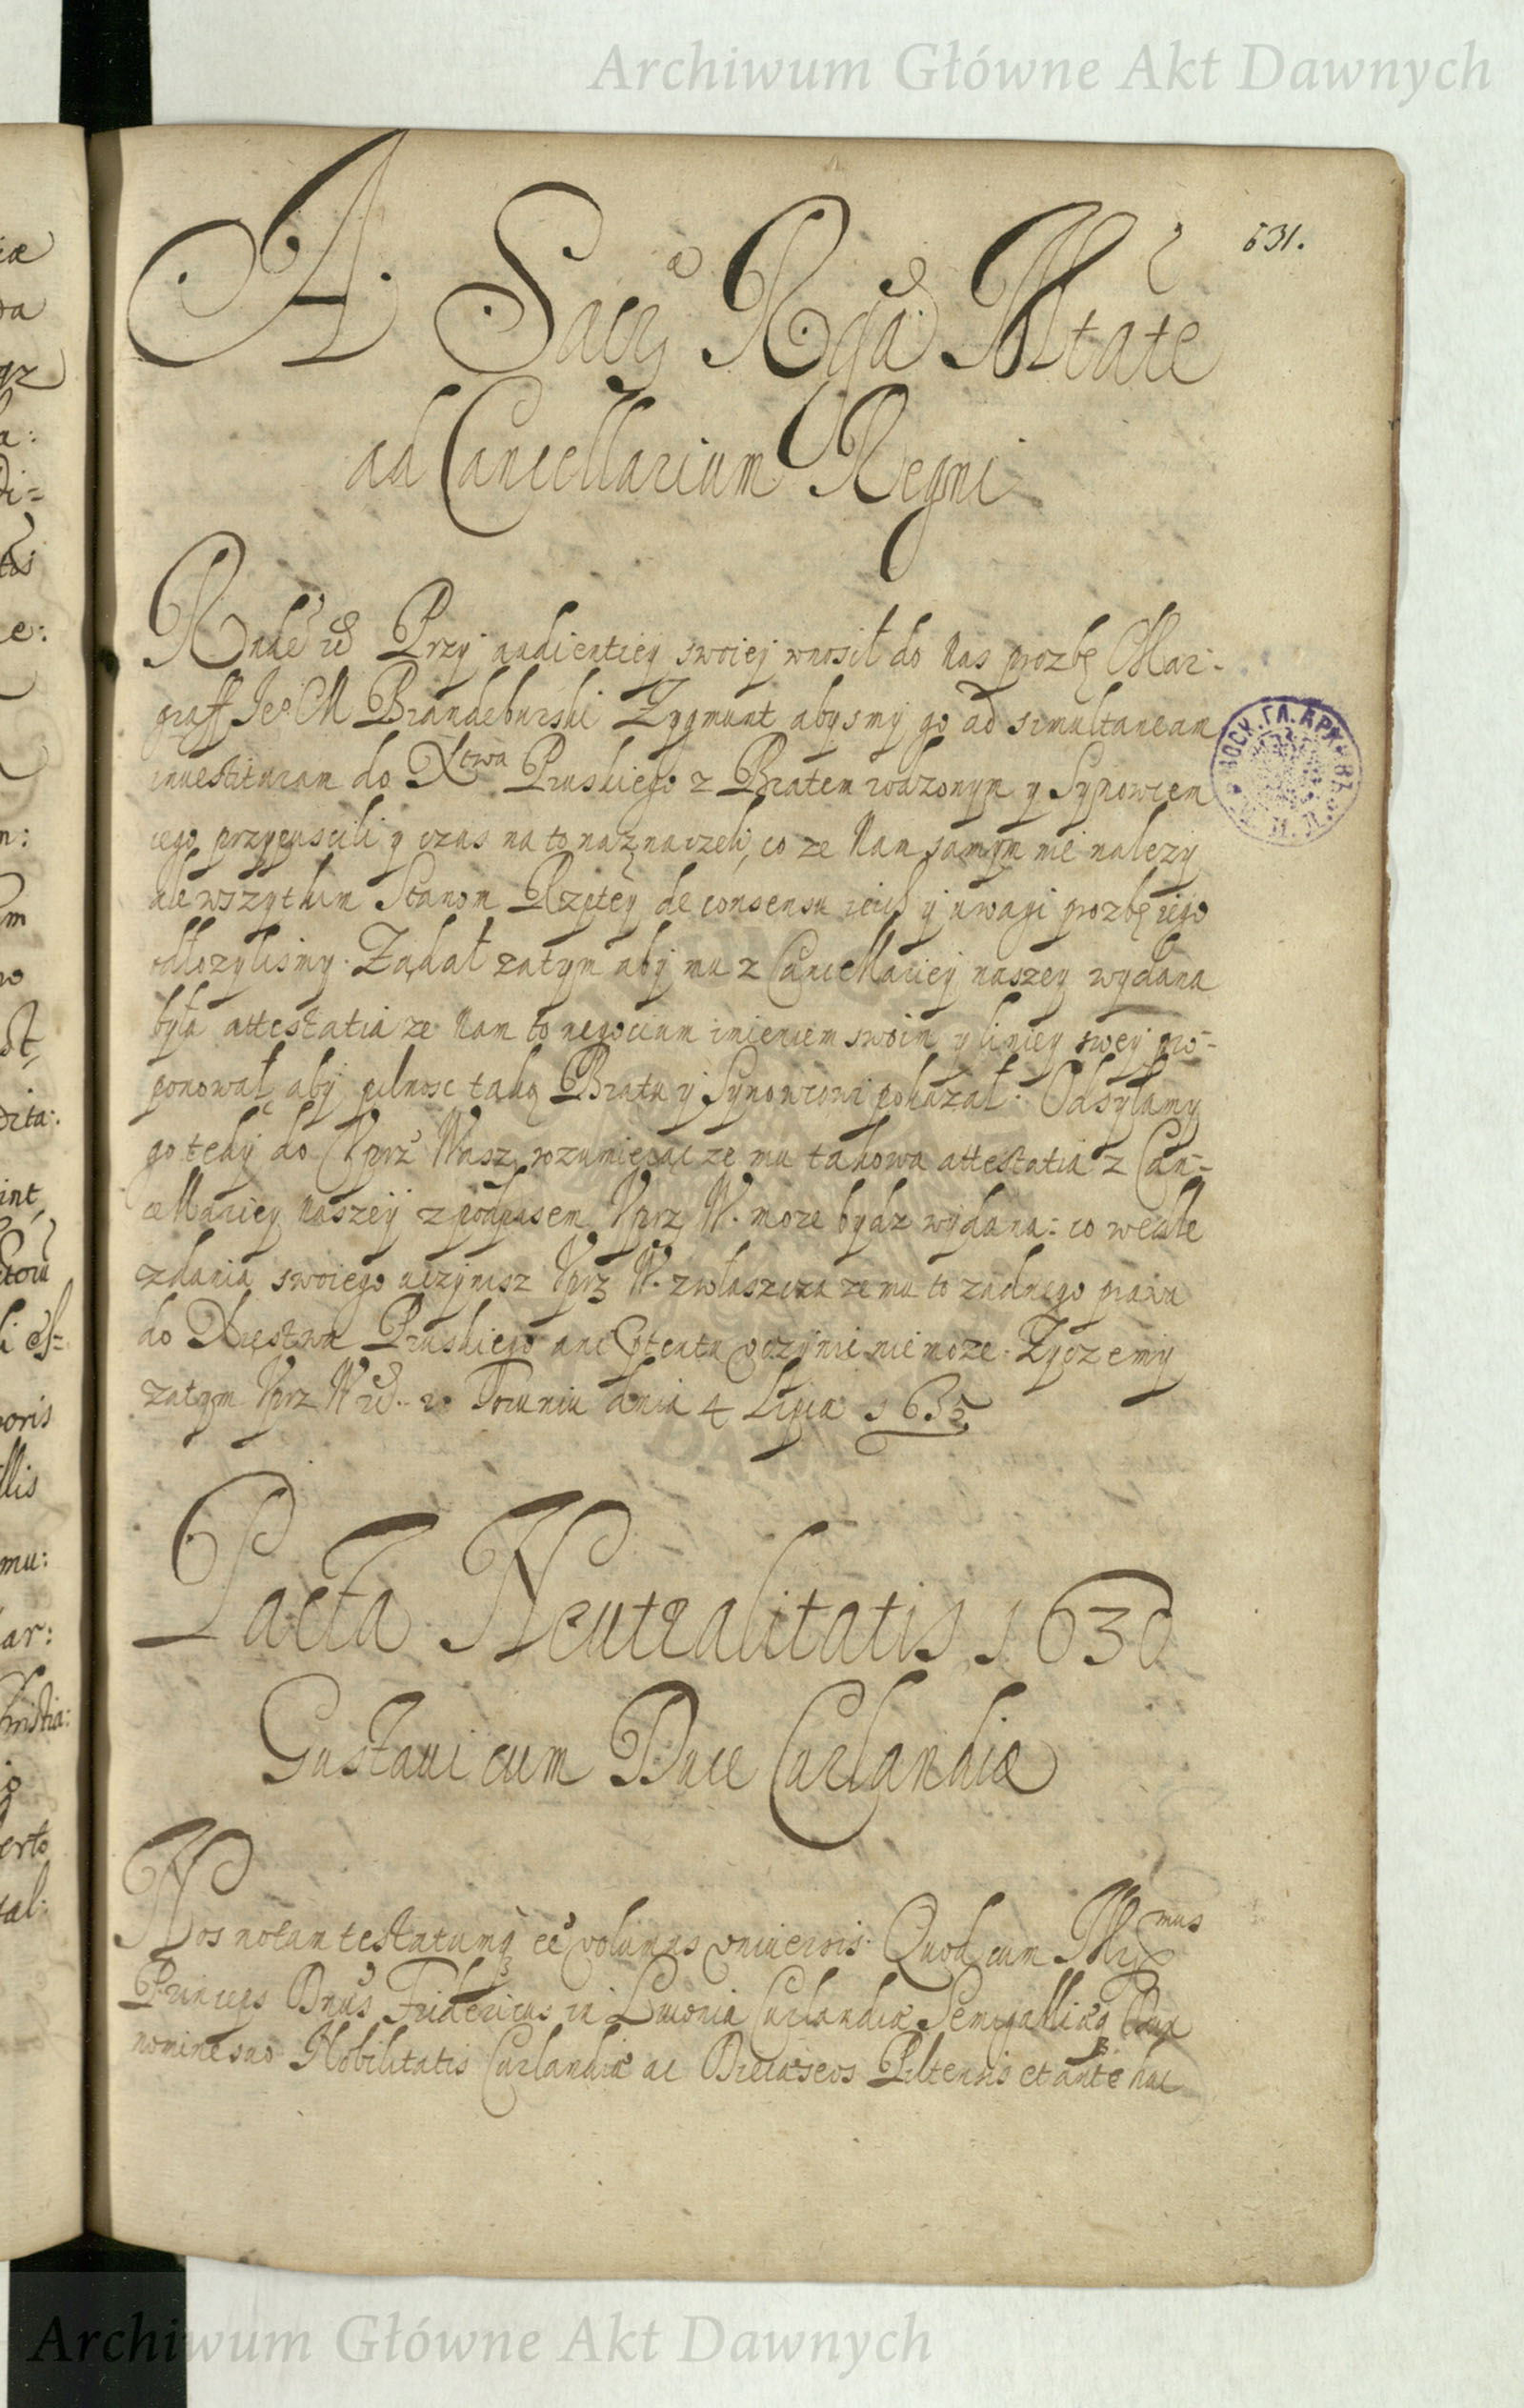 Archiwum Główne Akt Dawnych
631.
A Sacra Rgia Mtate
ad Cancellarium Regni
Przy audientiey swoiej wnosił do Nas prozbę Mar-
graff Je° M Brandeburski Zygmunt abysmy go ad simultaneam
inuestituram do Xtwa Pruskiego z Bratem rodzonym y Synowcem
iego przypuscili y czas na to naznaczeli, co ze Nam samym nie nalezy
ale wszytkim Stanom Rzptey de consensu ich y uwagi prozbę iego
odłozylismy. Ządał zatym aby mu z Cancellariej naszey wydana
była attestatia ze Nam to negocium imieniem swoim y liniey swey pro-
ponował, aby pilnosc taką Bratu y Synowcowi pokazał. Odsyłamy
go tedy do Uprz Wasz, rozumieiąc ze mu takowa attestatia z Can-
cellariey Naszeÿ z podpisem Uprz W. moze bydz wydana: co wedle
zdania swoiego uczynisz Uprz W. zwłaszcza ze mu to zadnego prawa
do Xięstwa Pruskiego ani uczynic nie moze. Zyczemy
zatym Uprz W w Toruniu dnia 4 Lipca 1635
Pacta Neutralitatis 1630
Gustaui cum Duce Curlandiæ
Nos notum testatumq eē volumus vniuersis. Quod cum Illmus
Princeps Dnus Fridericus in Liuonia Curlandiæ Semigalliæq Dux
nomine suo Nobilitatis Curlandiæ ac Diecæseos Piltensis et ante hac
Archiwum Główne Akt Dawnych